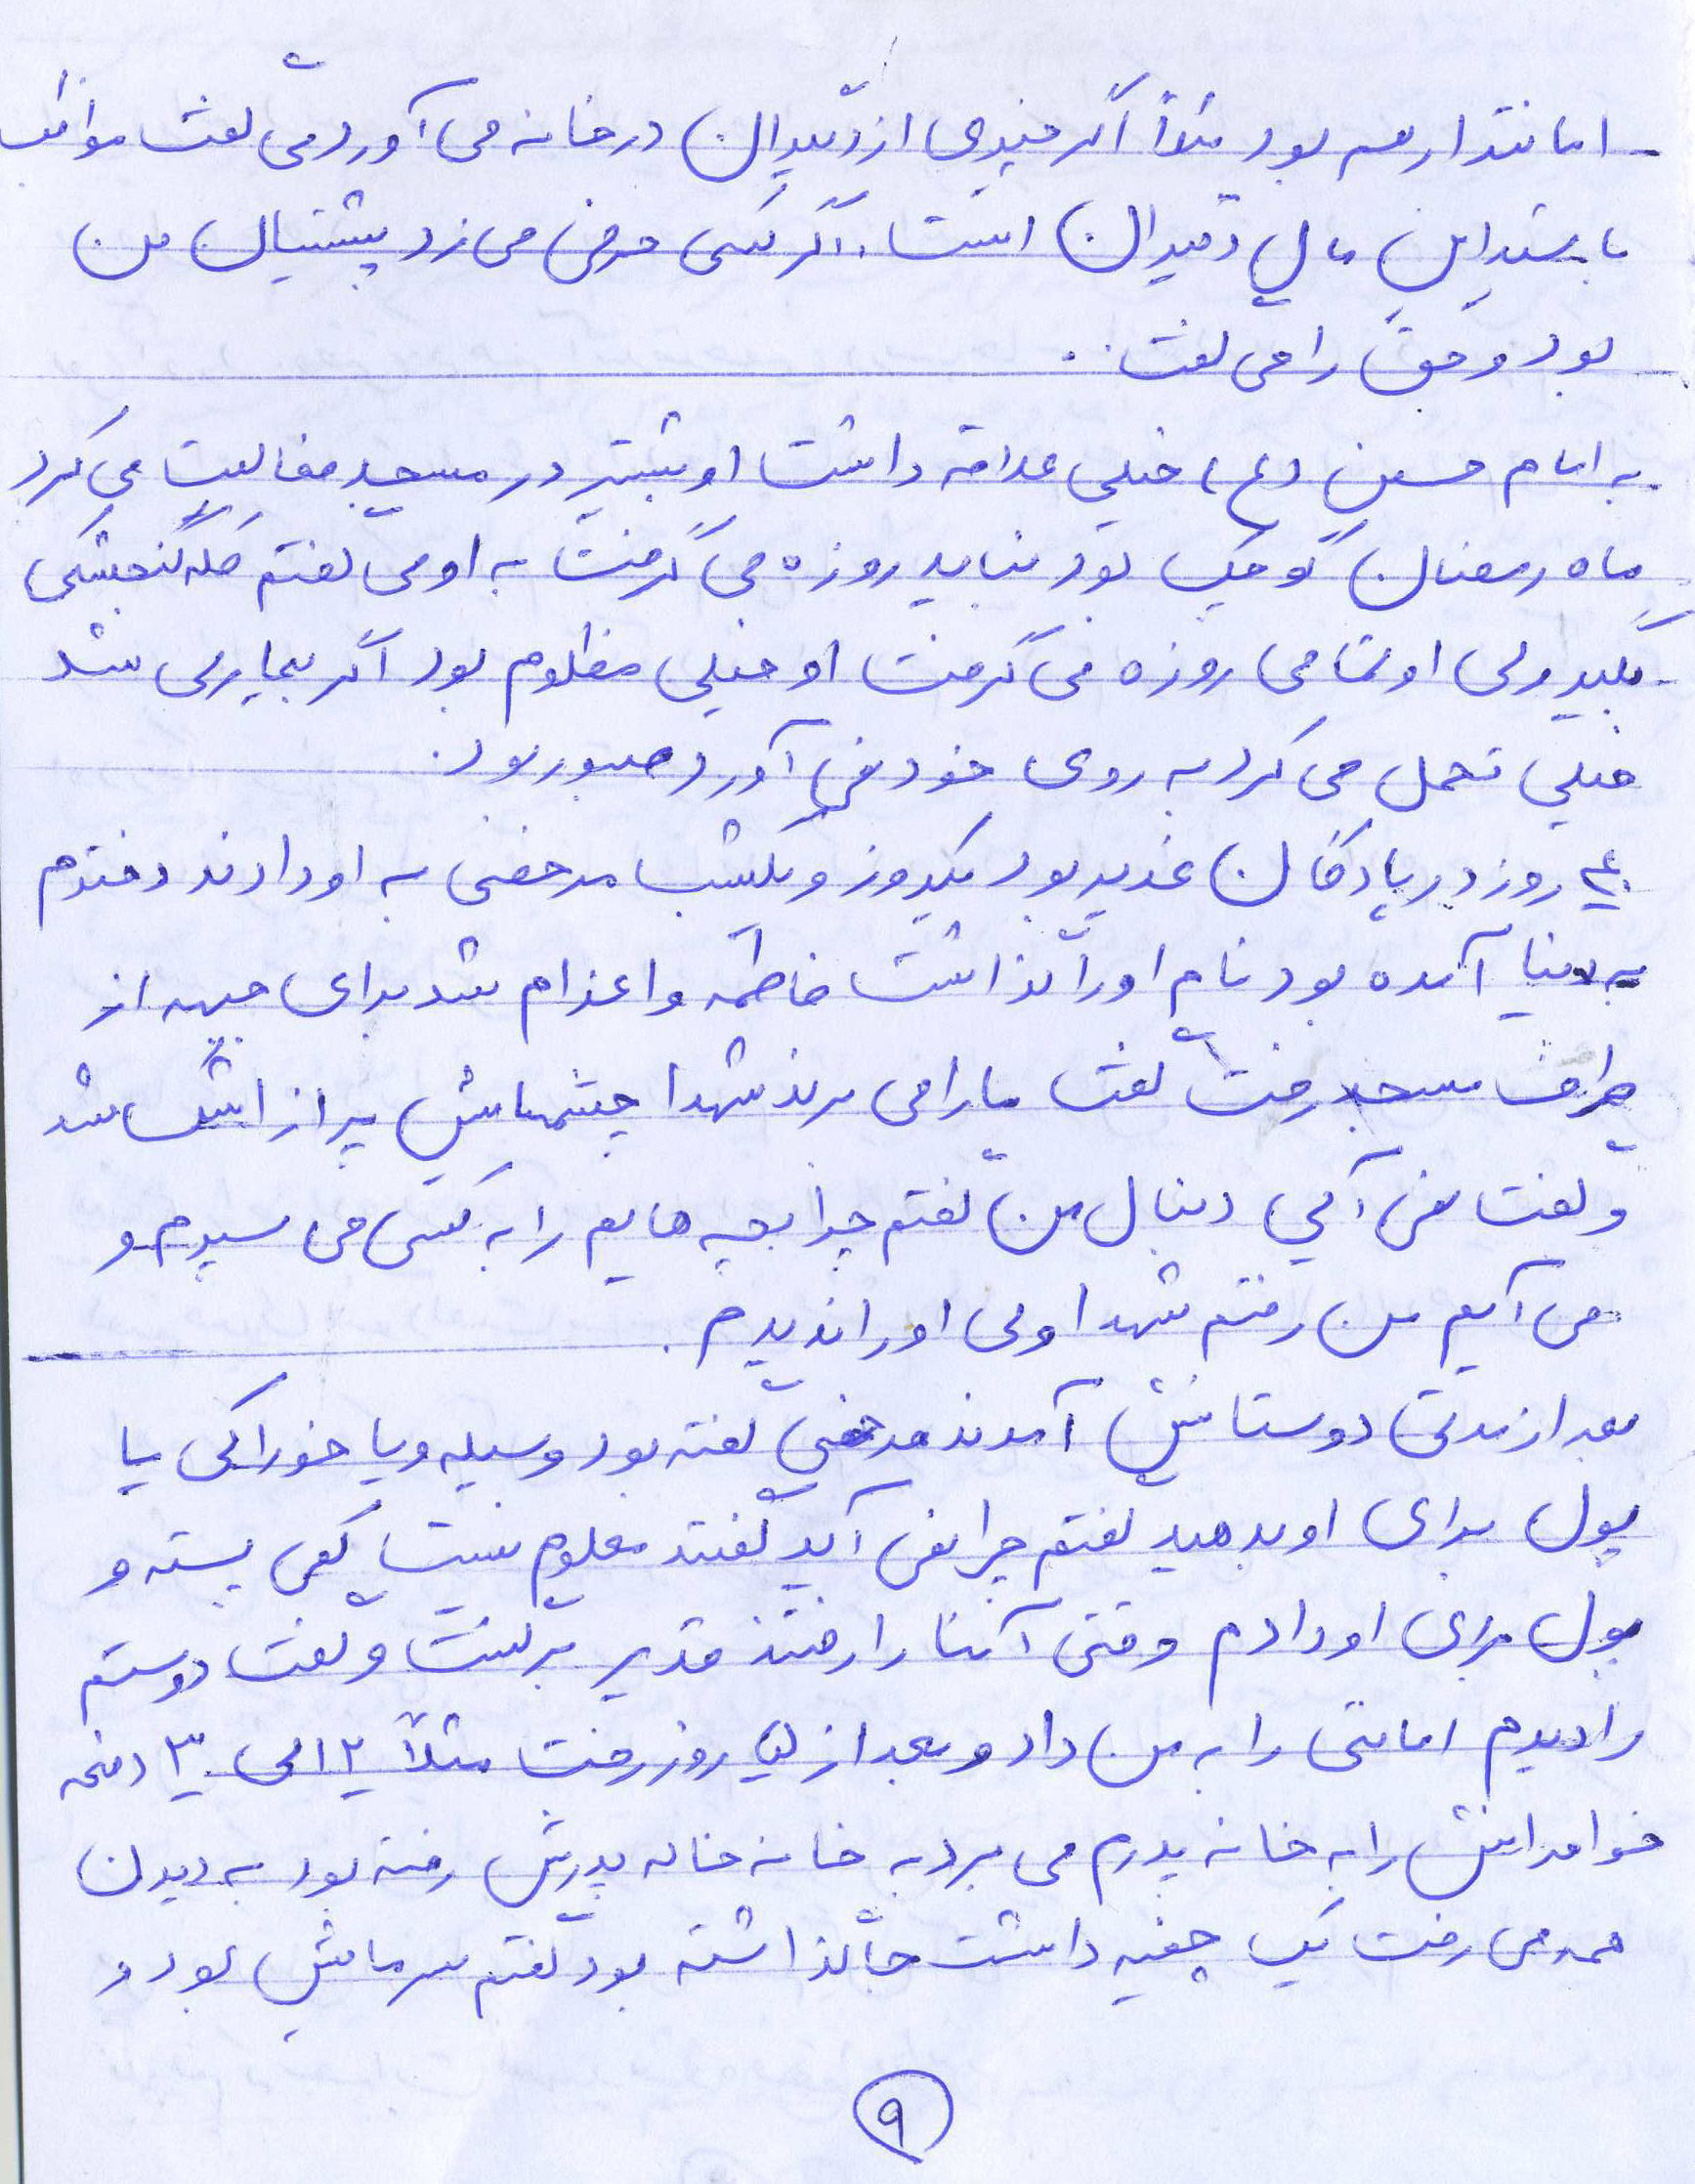 امانتدار هم بود مثلاً اگر چیزی از دیگران در خانه می آورد می گفت مواظب
باشید این مال دیگران است. اگر کسی حرفی می زد پشتیبان من
بود و حق را می گفت..
به امام حسین (ع) خیلی علاقه داشت او بیشتر در مسجد فعالیت می کرد
ماه رمضان کوچک بود نباید روزه می گرفت به او می گفتم کله گنجشکی
بگیر ولی او تمامی روزه می گرفت او خیلی مظلوم بود اگر بیمار می شد
خیلی تحمل می کرد به روی خود نمی آورد صبور بود.
۴۰ روز در پادگان غدیر بود یکروز و یکشب مرخصی به او دادند دخترم
به دنیا آمده بود نام او را گذاشت فاطمه و اعزام شد برای جبهه از
طرف مسجد رفت گفت ما را می برند شهدا چشمهایش پر از اشک شد
و گفت نمی آئی دنبال من گفتم چرا بچه هایم را به کسی می سپرم و
می آیم من رفتم شهدا ولی او را ندیدم.
بعد از مدتی دوستانش آمدند مرخصی گفته بود وسیله و یا خوراکی یا
پول برای او بدهید گفتم چرا نمی آید گفتند معلوم نیست کمی پسته و
پول برای او دادم وقتی آنها را رفتند قدیر برگشت و گفت دوستم
را دیدم امانتی را به من داد و بعد از روز رفت مثلاً ۲ الی ۳ دفعه
خواهرانش را به خانه پدرم می برد به خانه خاله پدرش رفته بود به دیدن
همه می رفت یک چفیه داشت جا گذاشته بود گفتم سرمایش بود و
۹